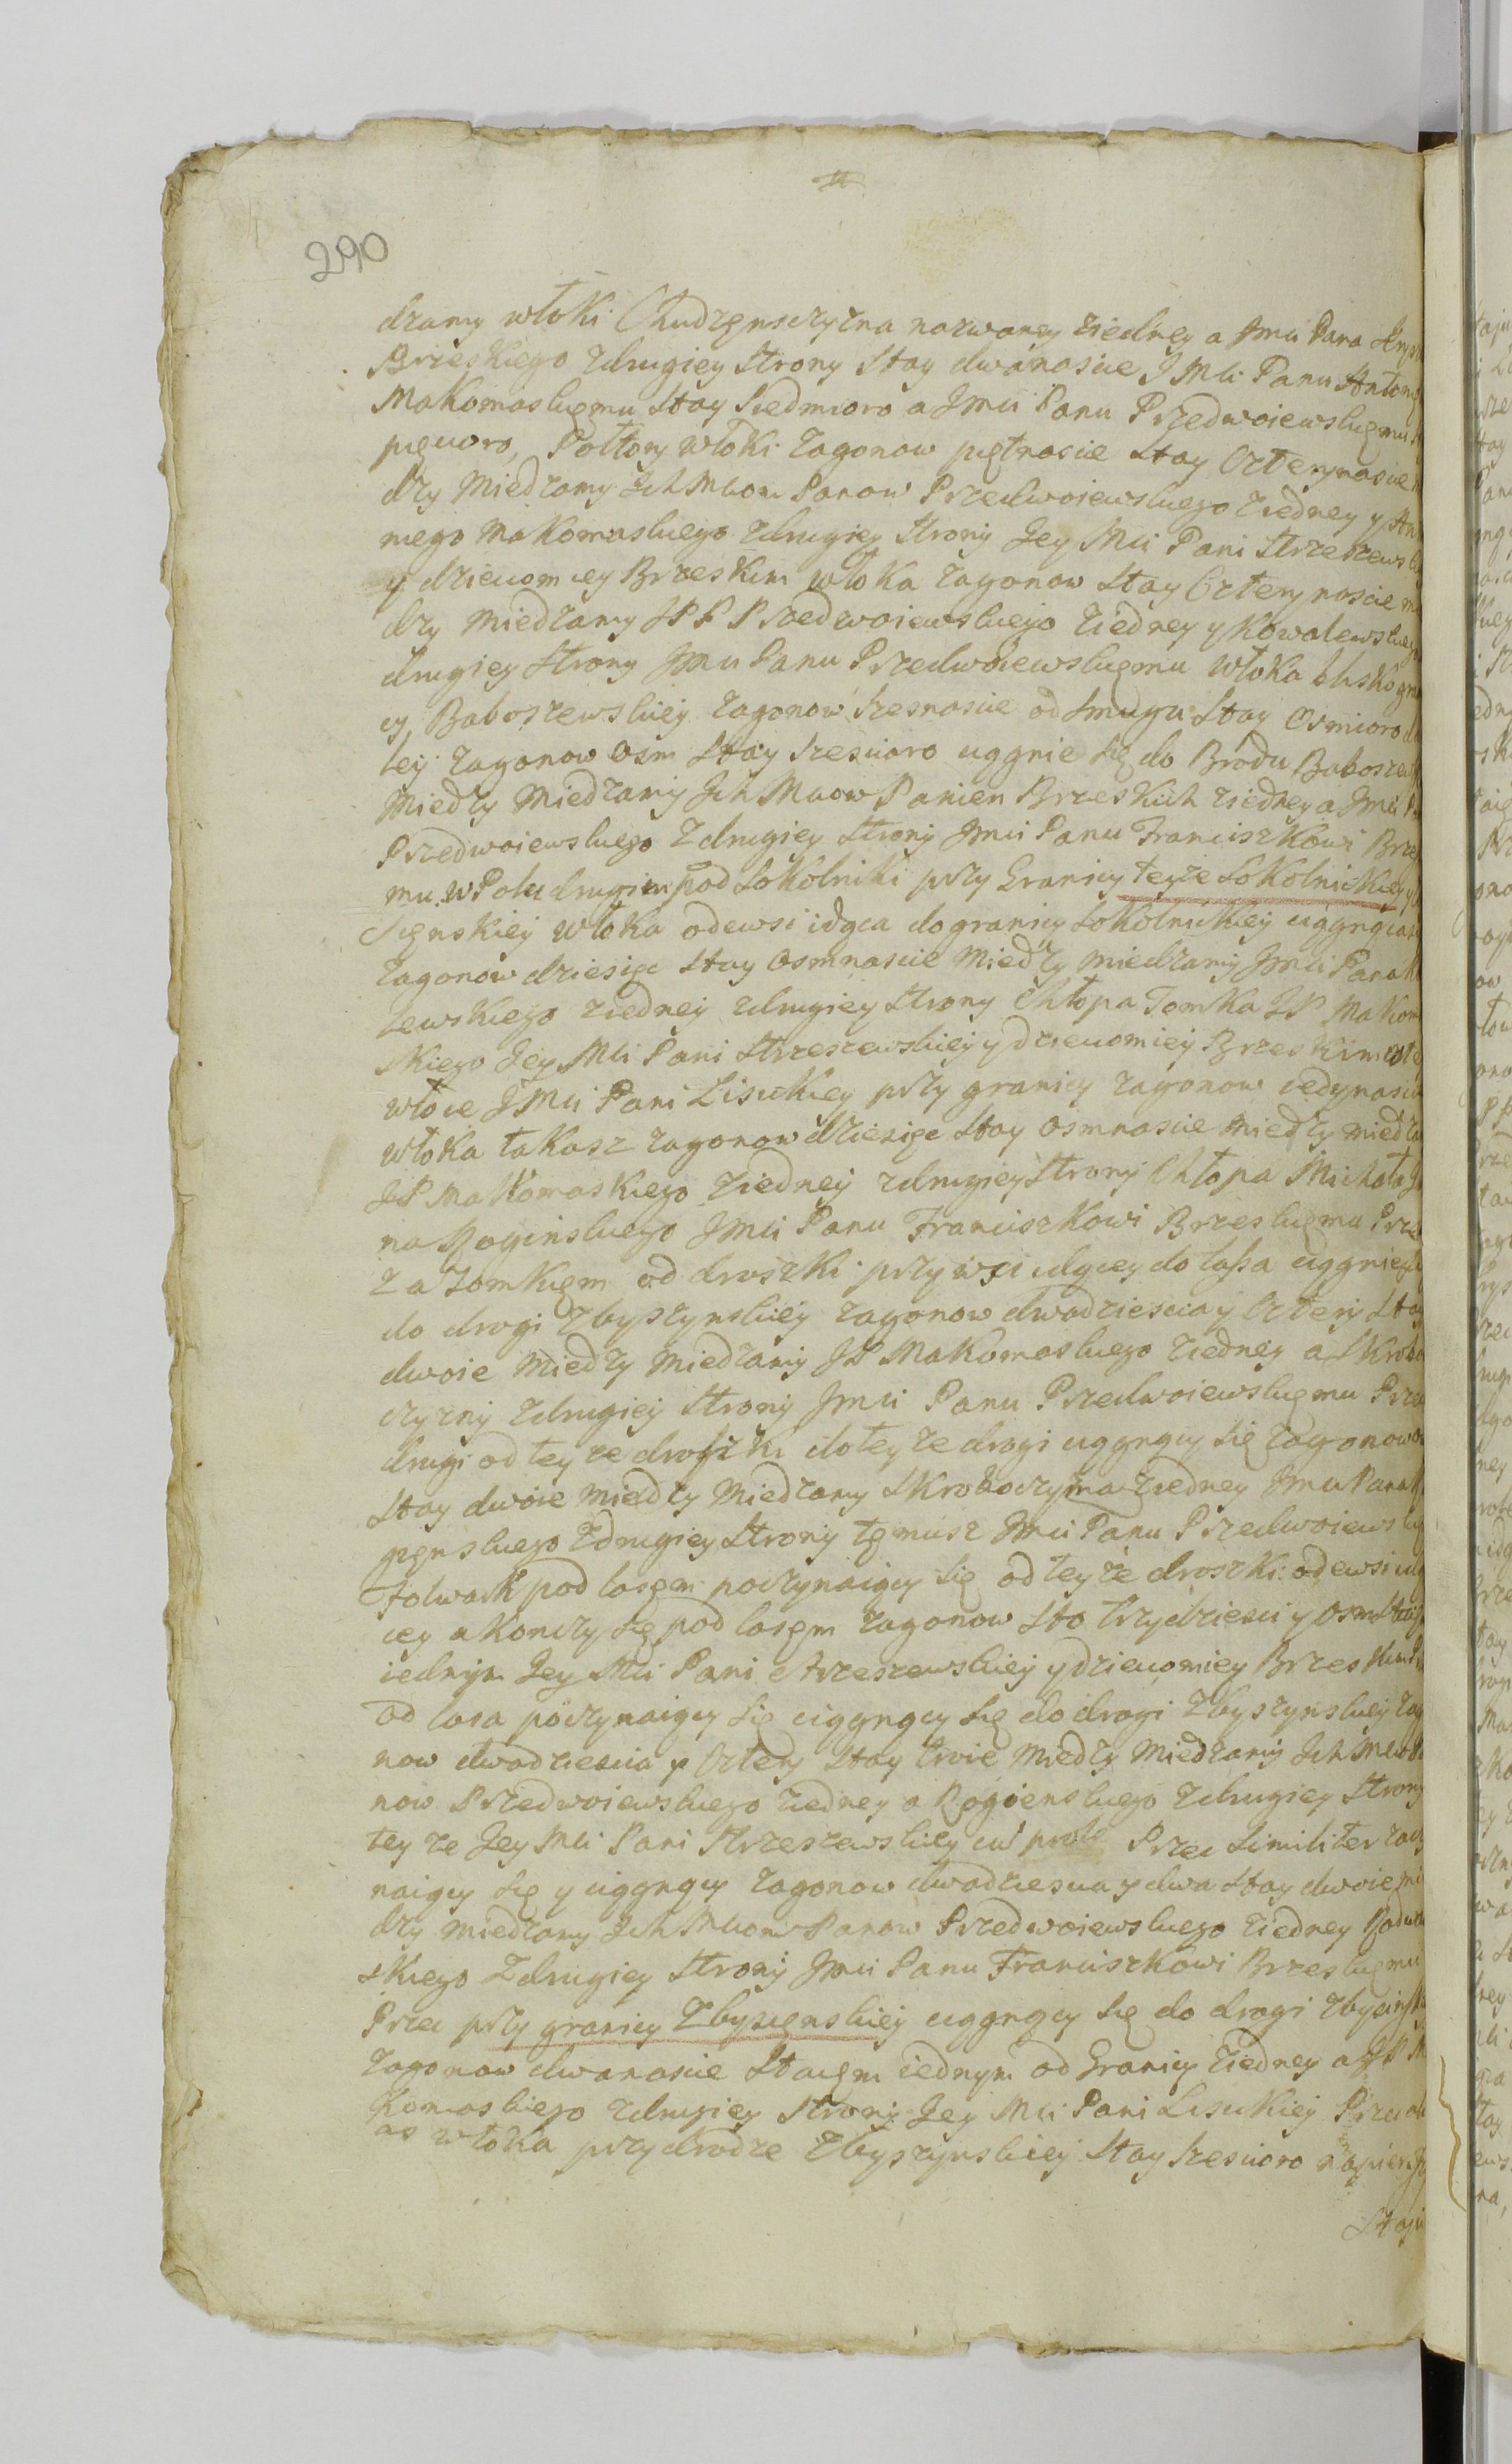 290
dzamy włoki Chudzęnsczyzna nazwaney ziedney a Jmci Pana
Brzeskiego zdrugiey strony Stay dwanascie J Mci Panu Antony
Makomaskięmu Stay Siedmioro a Jmci Panu Przedwoiewskięmu
pięcioro, Połtory włoki zagonow piętnascie Stay Czternascie
dzy Miedzamy Ich Mciow Panow Przedwoiewskiego ziedney y
niego Makomaskiego zdrugiey Strony Jey Mci Pani Strzeszews
y dzieciom iey Brzeskim włoka zagonow Stay Czternascie
dzy Miedzamy JPP Przedwoiewskiego ziedney y Kowalewskieg
drugiey Strony Jmci Panu Przedwoiewskięmu Włoka blisko
cy Baboszewskiey zagonow szesnascie od Smugu Stay Osmioro
tey zagonow Osm Stay szescioro ciągnie się do Brodu Babosze
Miedzy Miedzamy Ich Mciow Panien Brzeskich ziedney a Jmci
Przedwoiewskiego zdrugiey strony Jmci Panu Franciszkowi Brze
mu. w Polu drugim pod Sokolniki przy Granicy teyże Sokolnickiey
Sięnskiey włoka odewsi idąca do granicy Sokolnickiey ciągnąca
zagonow dziesięc Stay Osmnascie Miedzy miedzamy Jmci Pana
lewskiego ziedney zdrugiey Strony Chłopa Tomka JP Makom
skiego Jey Mci Pani Strzeszewskiey y dzieciom iey Brzeskim
włoce J Mci Pani Lisickiey przy granicy zagonow iedynascie
włoka takasz zagonow dziesięc Stay Osmnascie miedzy miedza
JP Makomaskiego ziedney zdrugiey Strony Chłopa Michała
na Rogienskiego Jmci Panu Franciszkowi Brzeskięmu Prze
za zomkięm od droszki przy wsi idącey do lassa ciągnie
do drogi Zbyszynskiey zagonow dwadziescia y Cztery Stay
dwoie Miedzy Miedzamy JP Makomaskiego ziedney a Skrobo
czyzny zdrugiey Strony Jmci Panu Przedwoiewskięmu Prze
drugi od tey ze droszki do tey ze drogi ciągnący się zagonow
Stay dwoie miedzy Miedzamy Skroboczyzna ziedney Jmci Pana
gięnskiego zdrugiey Strony tęmusz Jmci Panu Przedwoiewskię
Folwark pod lasęm poczynaiący się od tey że droszki odewsi
cey a konczy się pod lasęm zagonow Sto trzydziesci y osm
iednym Jey Mci Pani Strzeszewskiey y dzieciom iey Brzeskim
od lasa poczynaiący się ciągnący się do drogi Zbyszynskiey zag
now dwadziescia y Cztery Stay troie Miedzy Miedzamy Ich Mciow
now Przedwoiewskiego ziedney a Rogienskiego zdrugiey Strony
tey ze Jey Mci Pani Strzeszewskiey Prze Similiter zacz
naiący się y ciągnący zagonow dwadziescia y dwa Stay dwoie
dzy miedzamy Ich Mciow Panow Przedwoiewskiego ziedney
skiego zdrugiey Strony Jmci Panu Franciszkowi Brzeskięmu
Prze przy granicy Zbyszęnskiey ciągnący się do drogi
zagonow dwanascie Staięm iednym od Granicy ziedney a JP
komaskiego zdrugiey strony Jey Mci Pani Lisickiey
as włoka przydrodze Zbyszynskiey Stay szescioro